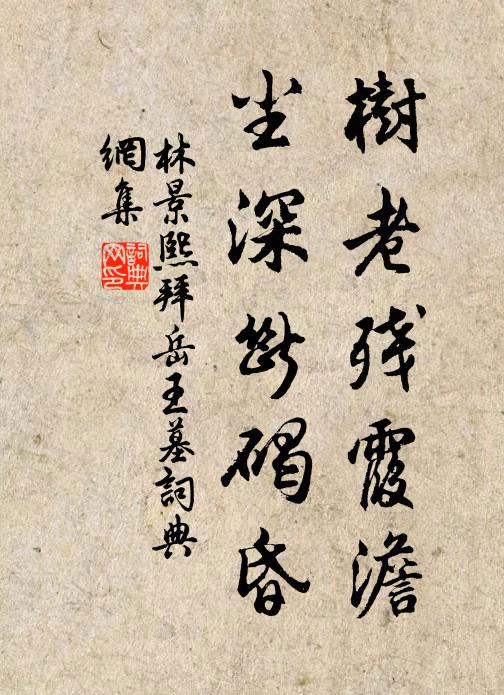 樹老残霞澹
尘深断碣昏
林景熙拜岳王墓詞典
網集
詞典
网印